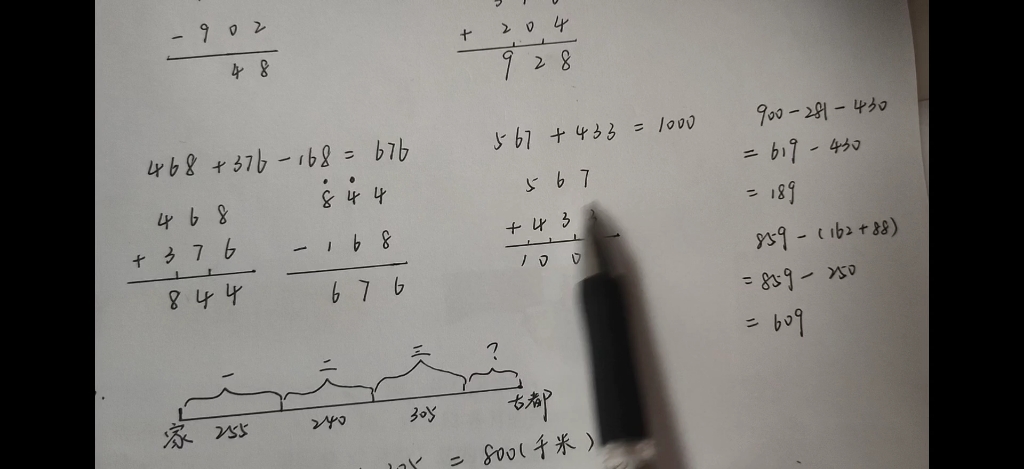 - 902
48
+ 204
928
468 + 376 - 168 = 676
468
+ 376
844
844
- 168
676
567 + 433 = 1000
567
+ 43
100
900 - 281 - 430
= 619 - 430
= 189
859 - (162 + 88)
= 859 - 250
= 609
一 二 三 ?
家 255 240 305 古都
= 800(千米)